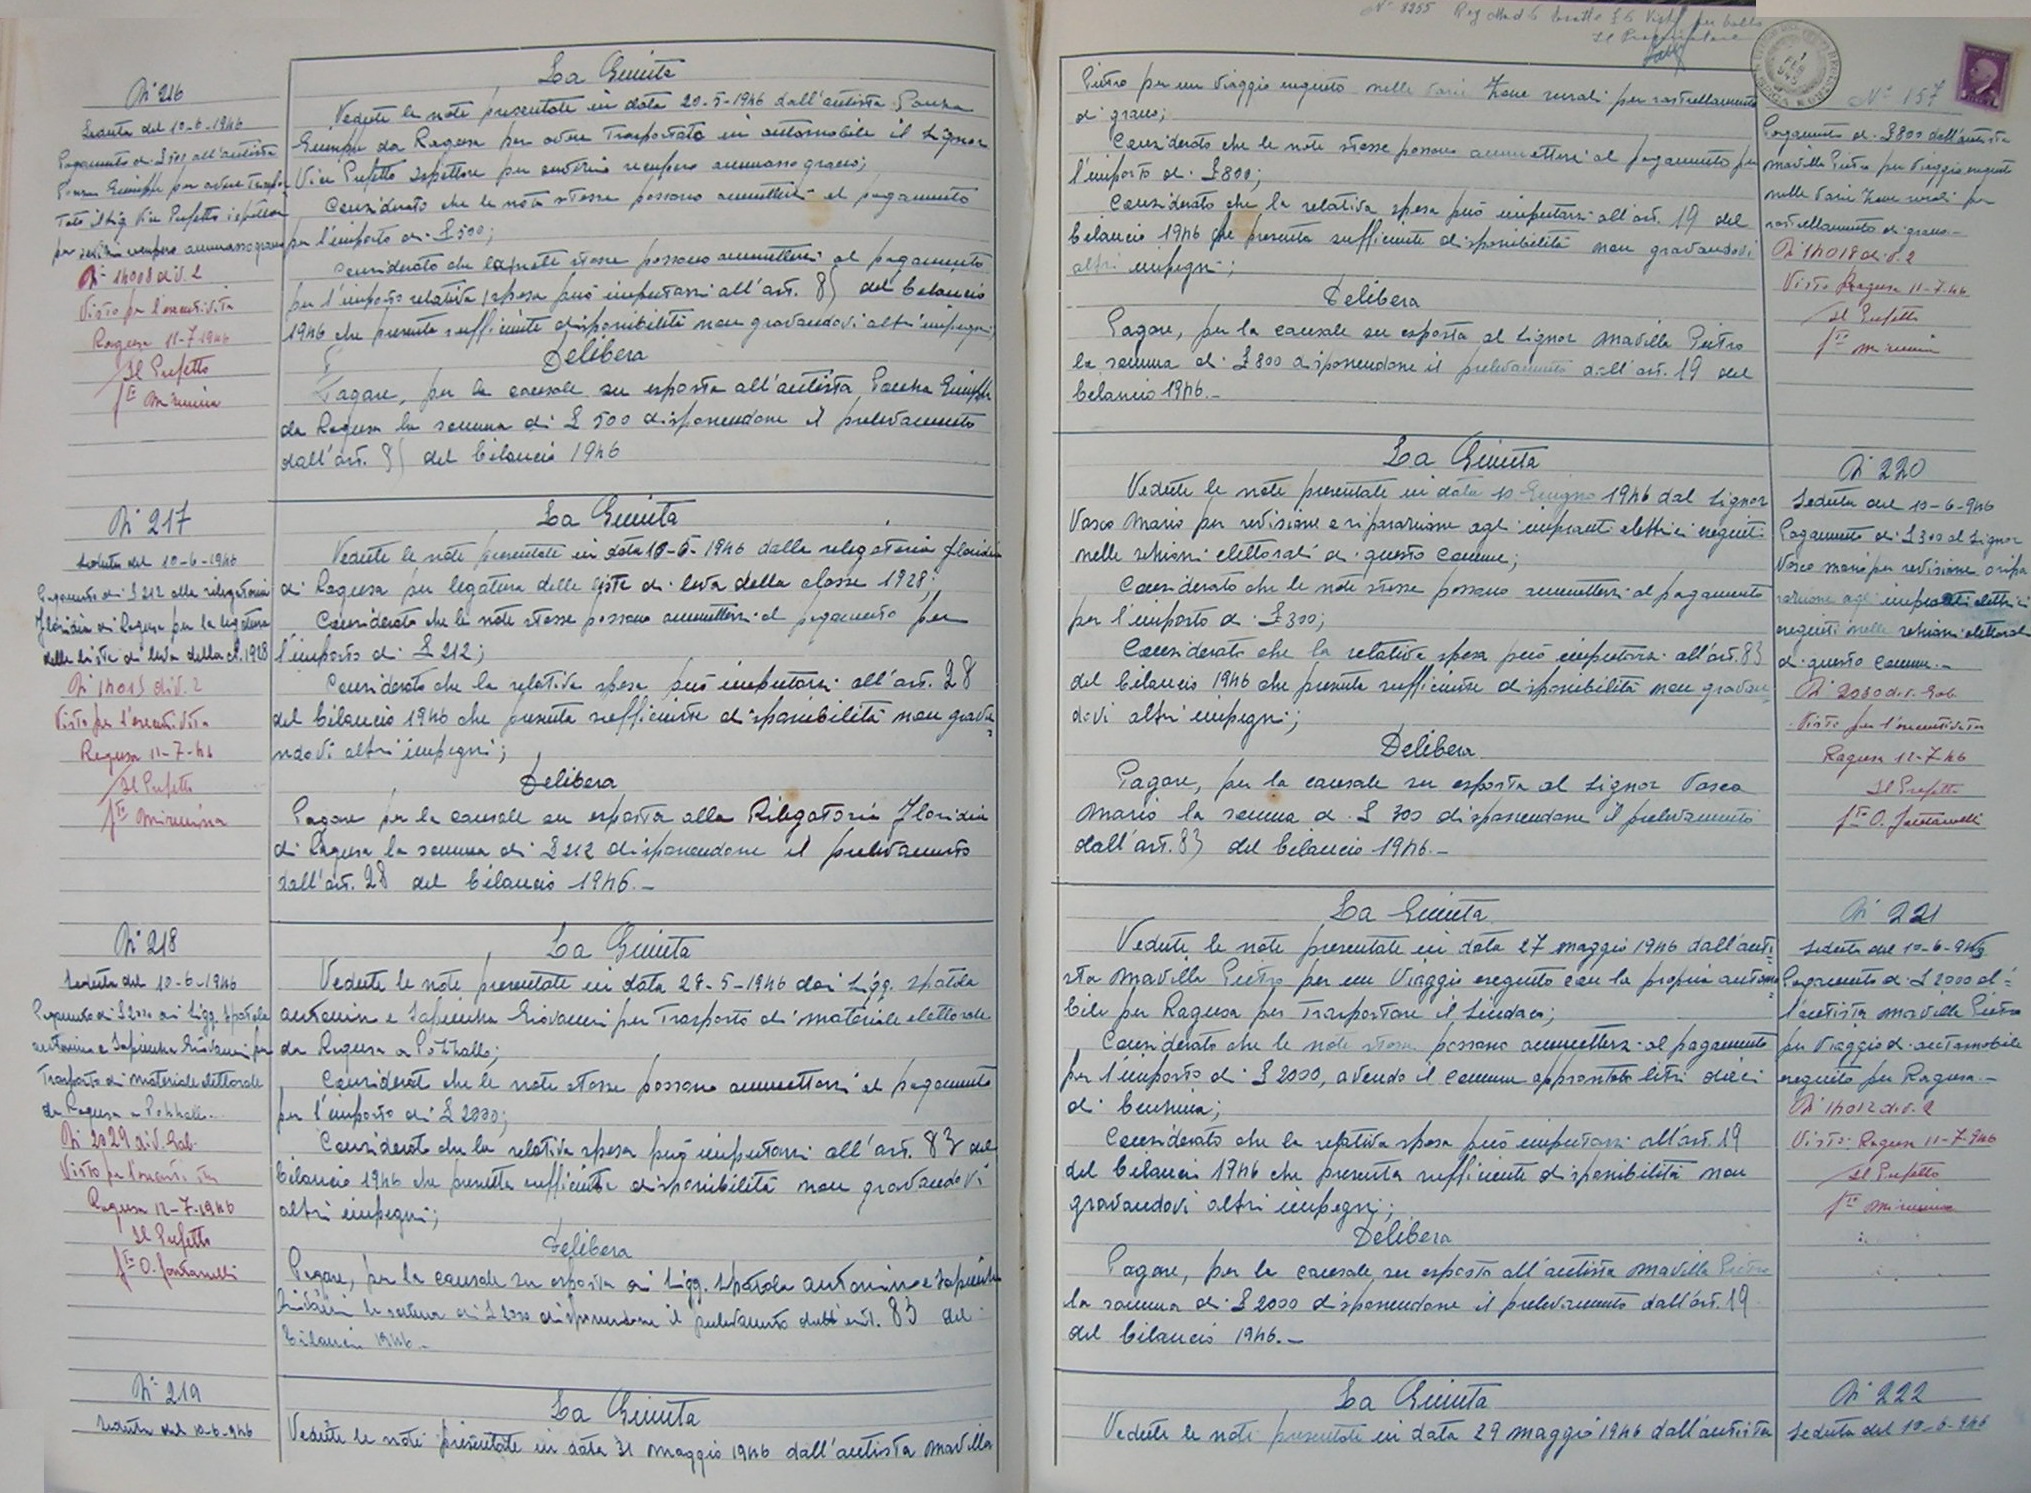 N° 216
Seduta del 10-6-1946
Pagamento di £ 500 all'autista
per servizio recupero ammasso grano
N° 14008 div. 2
Visto per l'esecutività
Ragusa 11-7-1946
Il Prefetto
La Giunta
Vedute le note presentate in data 20-5-1946 dall'autista
Giuseppe da Ragusa per avere Trasportato in automobile il Signor
Vice Prefetto Ispettore per servizio recupero ammasso grano;
Considerato che le note stesse possono ammettersi al pagamento
per l'importo di £ 500;
Considerato che le note stesse possono ammettersi al pagamento
per l'importo relativa spesa può imputarsi all'art. 85 del bilancio
1946 che presenta sufficiente disponibilità non gravandovi altri impegni;
Delibera
Pagare, per la causale su esposta all'autista
da Ragusa la somma di £ 500 disponendone il prelevamento
dall'art. 85 del bilancio 1946
N° 217
Seduta del 10-6-1946
Pagamento di £ 212 alla rilegatoria
Floridia di Ragusa per la legatura
delle liste di leva della cl. 1928
N° 14015 div. 2
Visto per l'esecutività
Ragusa 11-7-46
Il Prefetto
La Giunta
Vedute le note presentate in data 10-6-1946 dalla rilegatoria Floridia
di Ragusa per legatura delle liste di leva della classe 1928;
Considerato che le note stesse possono ammettersi al pagamento per
l'importo di £ 212;
Considerato che la relativa spesa può imputarsi all'art. 28
del bilancio 1946 che presenta sufficiente disponibilità non grava=
ndovi altri impegni;
Delibera
Pagare per la causale su esposta alla Rilegatoria Floridia
di Ragusa la somma di £ 212 disponendone il prelevamento
dall'art. 28 del bilancio 1946.-
N° 218
Seduta del 10-6-1946
Pagamento di £ 2000 ai Sigg. Spatola
Trasporto di materiale elettorale
da Ragusa a Pozzallo.
N° 2029 div. Gab.
Visto per l'esecutività
Ragusa 12-7-1946
Il Prefetto
f.to O. Fontanelli
La Giunta
Vedute le note presentate in data 28-5-1946 dai Sigg. Spatola
Antonino e Sapienza Giovanni per Trasporto di materiale elettorale
da Ragusa a Pozzallo;
Considerato che le note stesse possono ammettersi al pagamento
per l'importo di £ 2000;
Considerato che la relativa spesa può imputarsi all'art. 83 del
bilancio 1946 che presenta sufficiente disponibilità non gravandovi
altri impegni;
Delibera
Pagare, per la causale su esposta ai Sigg. Spatola Antonino e Sapienza
Giovanni la somma di £ 2000 disponendone il prelevamento dall'art. 83 del
bilancio 1946.-
N° 219
Seduta del 10-6-946
La Giunta
Vedute le note presentate in data 31 maggio 1946 dall'autista Mavilla
N° 157
Pietro per un viaggio eseguito nelle varie Zone rurali per rastrellamento
di grano;
Considerato che le note stesse possono ammettersi al pagamento per
l'importo di £ 800;
Considerato che la relativa spesa può imputarsi all'art. 19 del
bilancio 1946 che presenta sufficiente disponibilità non gravandovi
altri impegni;
Delibera
Pagare, per la causale su esposta al Signor Mavilla Pietro
la somma di £ 800 disponendone il prelevamento dall'art. 19 del
bilancio 1946.-
Pagamento di £ 800 dall'autista
Mavilla Pietro per Viaggio eseguito
nelle varie Zone rurali per
rastrellamento di grano.-
N° 14018 div. 2
Visto Ragusa 11-7-46
Il Prefetto
La Giunta
Vedute le note presentate in data 10 Giugno 1946 dal Signor
Vasco Mario per revisione e riparazione agli impianti elettrici eseguiti
nelle sezioni elettorali di questo Comune;
Considerato che le note stesse possono ammettersi al pagamento
per l'importo di £ 300;
Considerato che la relativa spesa può imputarsi all'art. 83
del bilancio 1946 che presenta sufficiente disponibilità non gravan-
dovi altri impegni;
Delibera
Pagare, per la causale su esposta al Signor Vasco
Mario la somma di £ 300 disponendone il prelevamento
dall'art. 83 del bilancio 1946.-
N° 220
Seduta del 10-6-946
Pagamento di £ 300 al Signor
Vasco Mario per revisione e ripa
razione agli impianti elettrici
eseguiti nelle sezioni elettorali
di questo Comune.-
N° 2030 div. Gab.
Visto per l'esecutività
Ragusa 12-7-46
Il Prefetto
f.to O. Fontanelli
La Giunta
Vedute le note presentate in data 27 maggio 1946 dall'auti=
sta Mavilla Pietro per un Viaggio eseguito con la propria automo=
bile per Ragusa per Trasportare il Sindaco;
Considerato che le note stesse possono ammettersi al pagamento
per l'importo di £ 2000, avendo il Comune approntato litri dieci
di benzina;
Considerato che la relativa spesa può imputarsi all'art. 19
del bilancio 1946 che presenta sufficiente disponibilità non
gravandovi altri impegni;
Delibera
Pagare, per la causale su esposta all'autista Mavilla Pietro
la somma di £ 2000 disponendone il prelevamento dall'art. 19
del bilancio 1946.-
N° 221
Seduta del 10-6-946
Pagamento di £ 2000 al=
l'autista Mavilla Pietro
per Viaggio di automobile
eseguito per Ragusa.-
N° 14012 div. 2
Visto: Ragusa 11-7-946
Il Prefetto
La Giunta
Vedute le note presentate in data 29 maggio 1946 dall'autista
N° 222
Seduta del 10-6-946